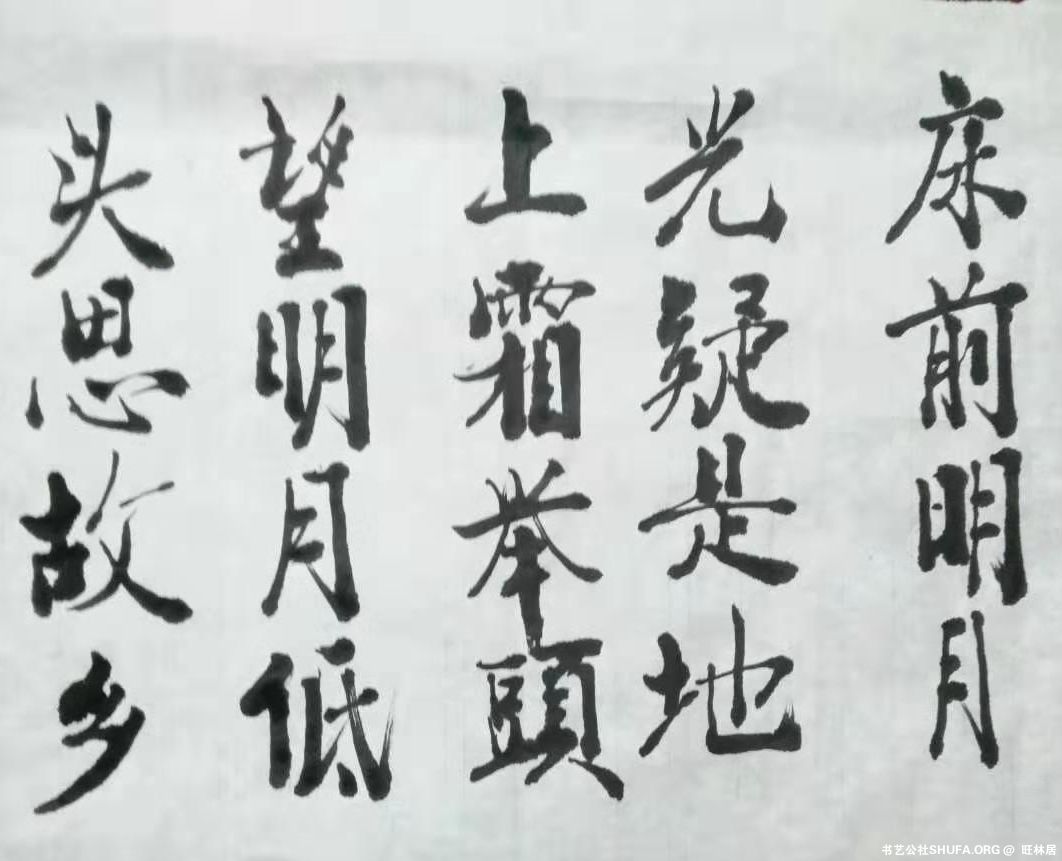 床前明月
光疑是地
上霜举頭
望明月低
头思故乡
书艺公社SHUFA.ORG @ 旺林居